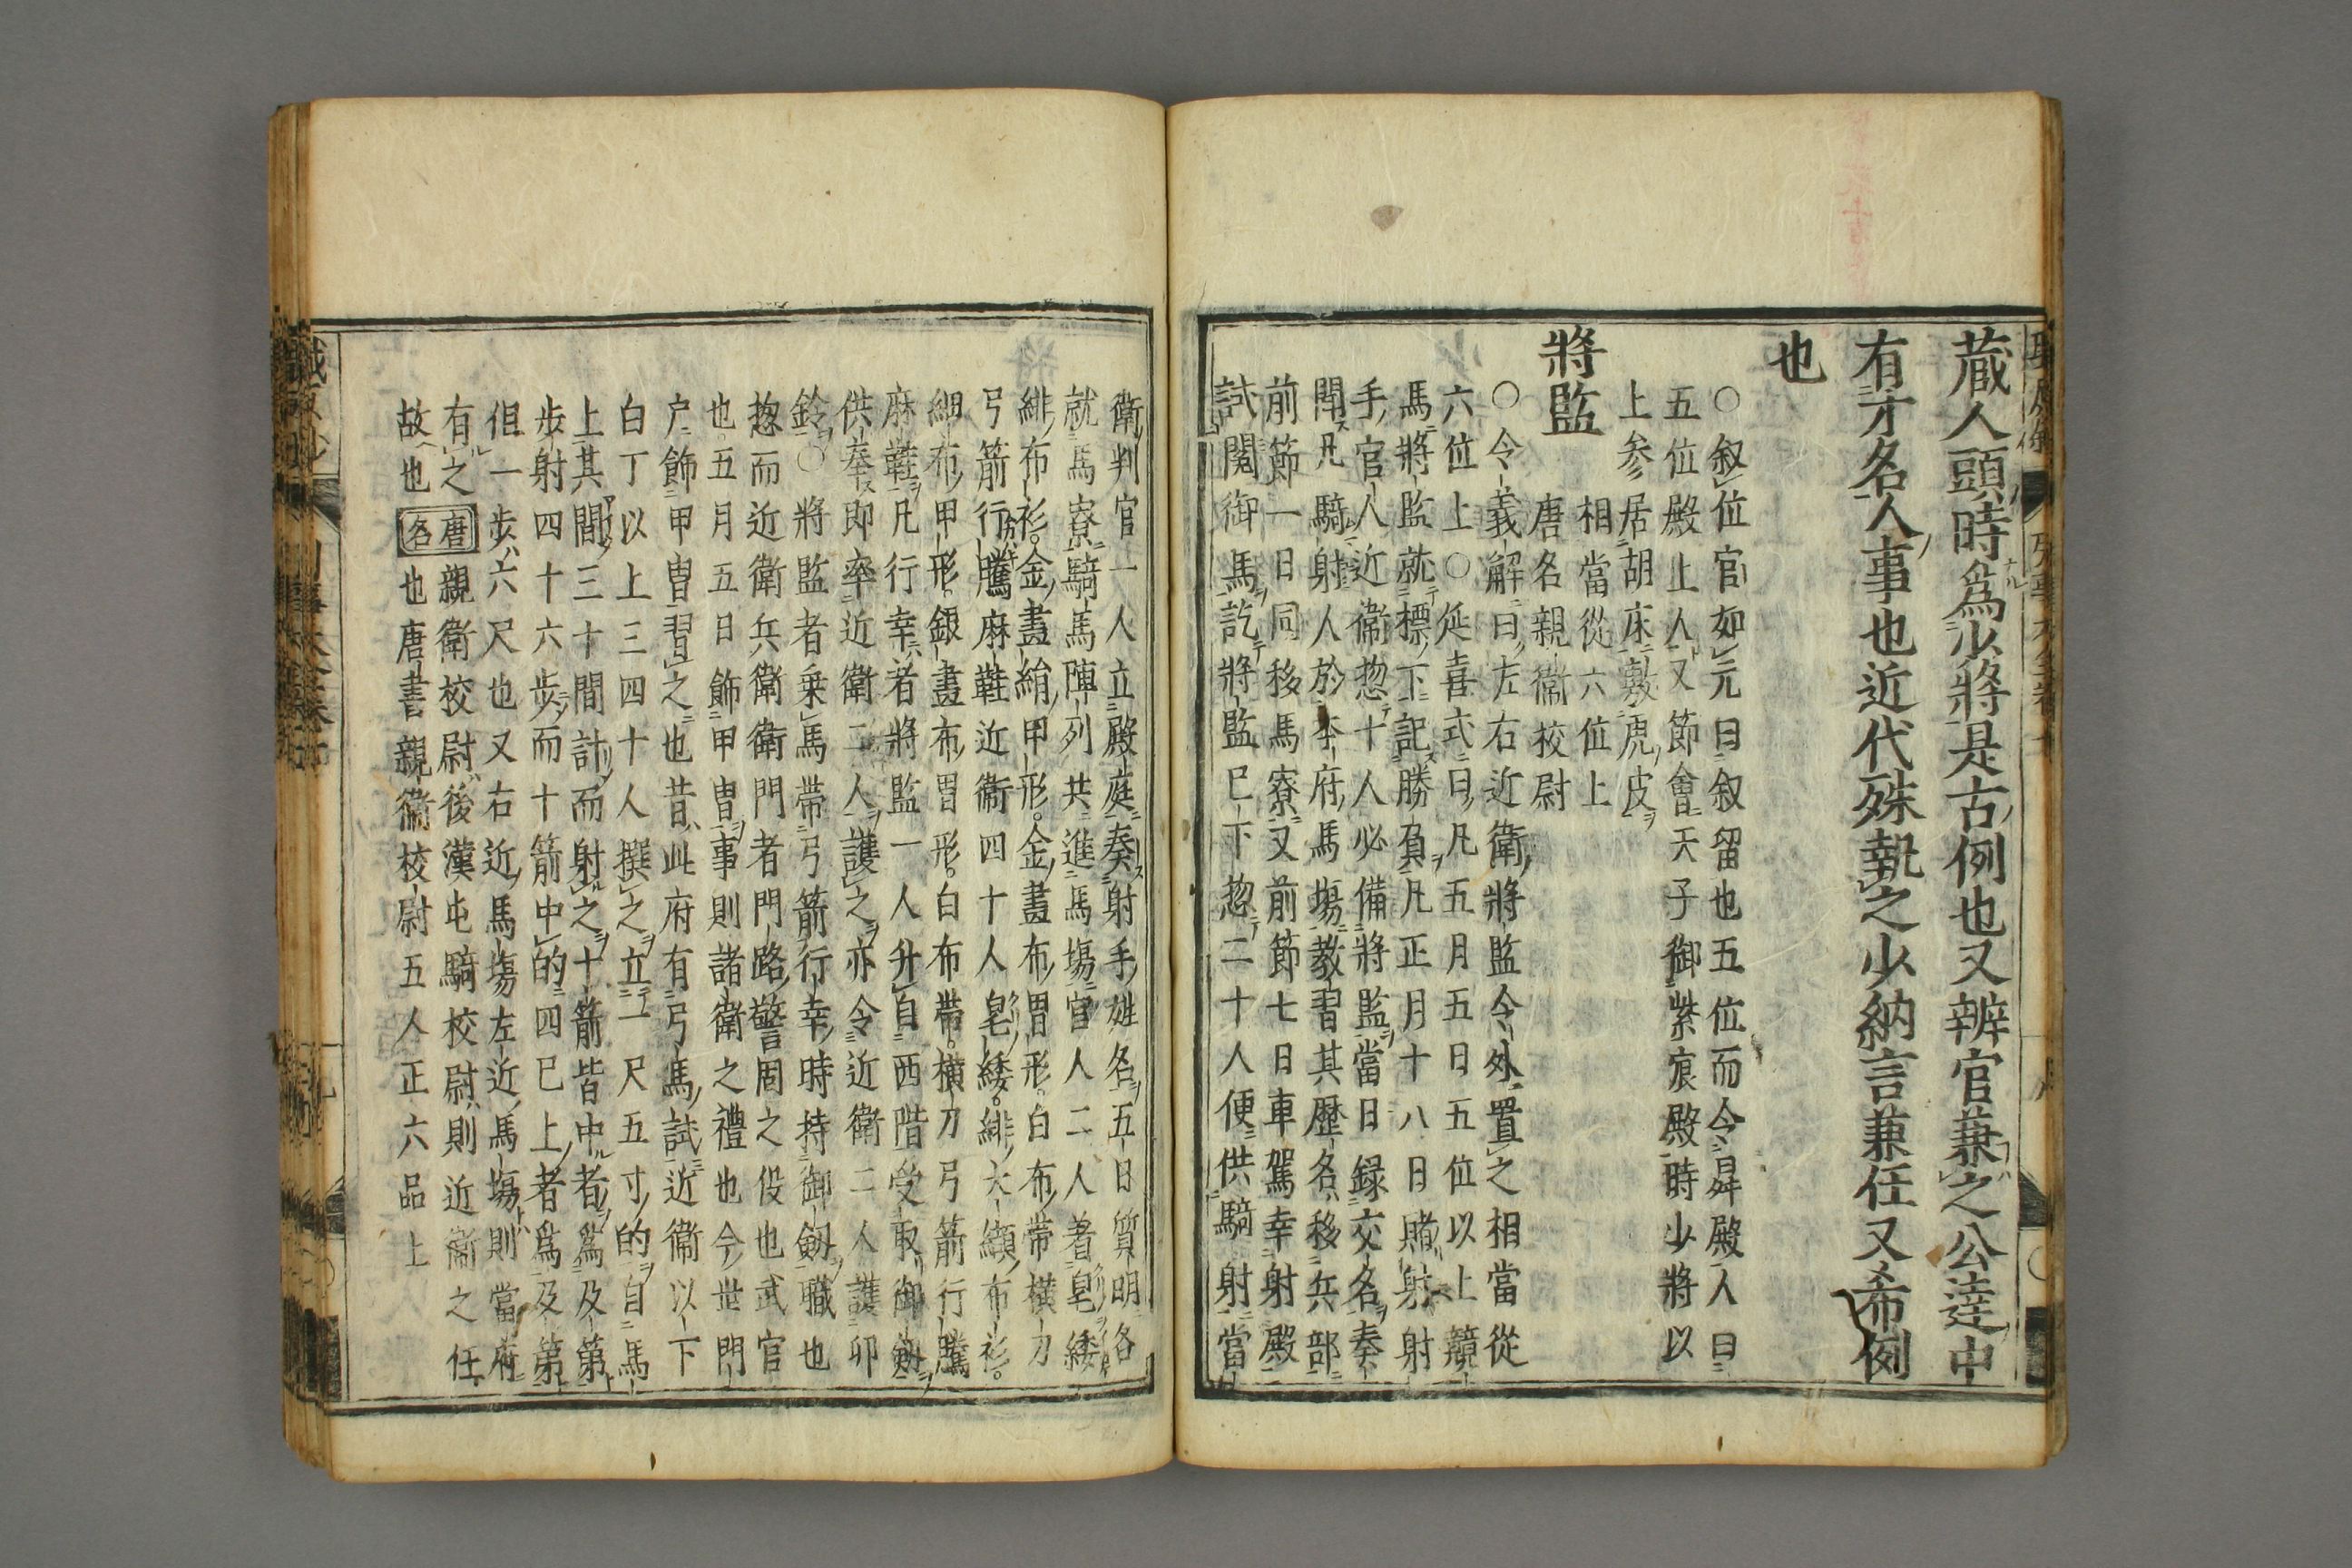 蔵人頭時爲少將是古例也又辨官兼之公達中
有才名人事也近代殊執之少納言兼任又希例
也
〇叙位官如元曰叙留也五位而今昇殿人曰
五位殿上人又節會天子御紫宸殿時少將以
上参居胡床敷虎皮
相當從六位上
將監
唐名親衞校尉
〇令義解曰左右近衛將監令外置之相當從
六位上〇延喜式曰凡五月五日五位以上競
馬將監就標下記勝負凡正月十八日賭射射
手官人近衞惣十人必備將監當日録交名奏
聞凡騎射人於本府馬塲教習其歴名移兵部
前節一日同移馬寮又前節七日車駕幸射殿
試閲御馬訖將監已下惣二十人便供騎射當
衛判官一人立殿庭奏射手姓名五日質明各
就馬寮騎馬陣列共進馬塲官人二人著皂緌
緋布衫金畫絹甲形金畫布冑形白布帶横刀
弓箭行騰麻鞋近衞四十人皂緌緋大纈布衫
細布甲形銀畫布冑形白布帶横刀弓箭行騰
麻鞋凡行幸者將監一人升自西階受取御劔
供奉即率近衛二人護之亦令近衛二人護印
鈴〇將監者乗馬帶弓箭行幸時持御劔職也
惣而近衛兵衛衛門者門路警固之役也武官
也五月五日飾甲冑事則諸衛之禮也今世門
户飾甲冑習之也昔此府有弓馬試近衞以下
白丁以上三四十人撰之立一尺五寸的自馬
上其間三十間計而射之十箭皆中者爲及第
歩射四十六歩而十箭中的四已上者爲及第
但一歩六尺也又右近馬塲左近馬塲則當府
有之親衛校尉後漢屯騎校尉則近衞之任
故也唐名也唐書親衞校尉五人正六品上